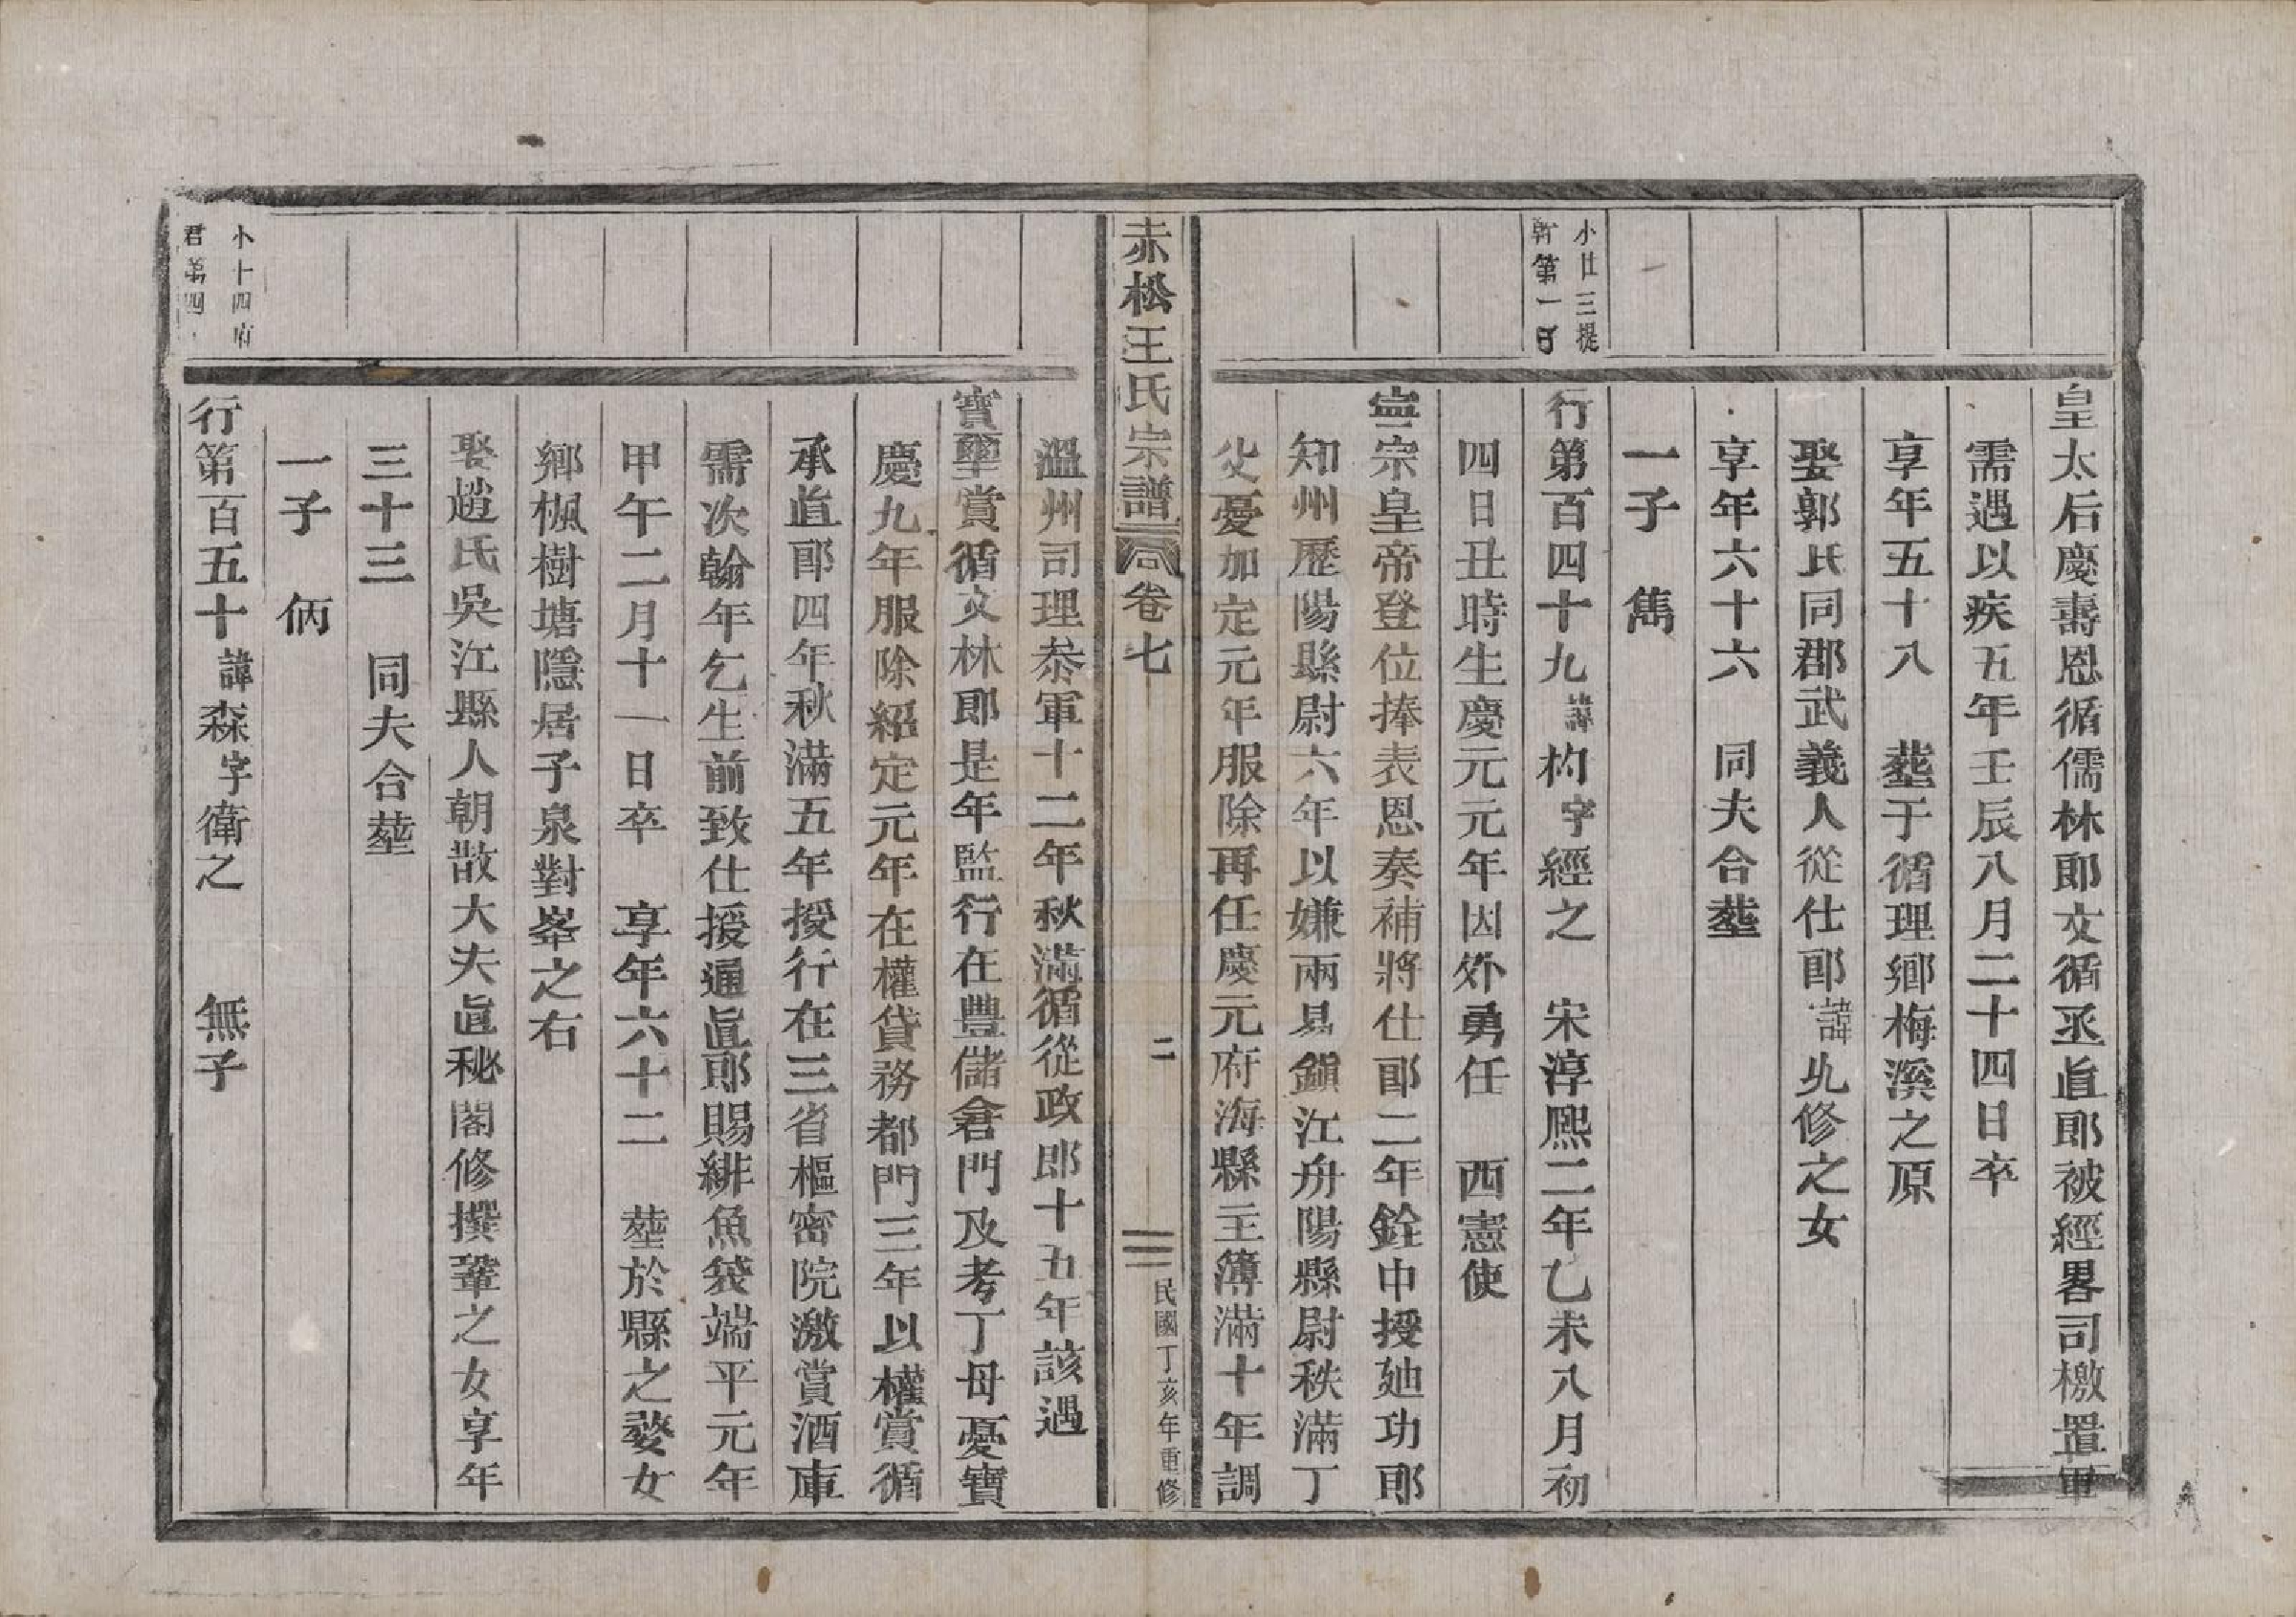 皇太后慶壽恩循儒林郎文循丞直郎被經畧司檄置軍
需遇以疾五年壬辰八月二十四日卒
享年五十八　塟于循理鄉梅溪之原
娶郭氏同郡武義人從仕郎諱允修之女
享年六十六　同夫合塟
一子　雋
小廿三提
幹第一日
行第百四十九諱杓字經之　宋淳熙二年乙未八月初
四日丑時生慶元元年因外舅任　西憲使
寧宗皇帝登位捧表恩奏補將仕郎二年銓中授廸功郎
知州歷陽縣尉六年以嫌兩易鎮江丹陽縣尉秩滿丁
父憂加定元年服除再任慶元府海縣主簿滿十年調
赤松王氏宗譜　卷七　二　民國丁亥年重修
溫州司理叅軍十二年秋滿循從政郎十五年該遇
寶璽賞循文林郎是年監行在豐儲倉門及考丁母憂寶
慶九年服除紹定元年在權貨務都門三年以權賞循
承直郎四年秋滿五年授行在三省樞密院激賞酒庫
需次翰年乞生前致仕授通直郎賜緋魚袋端平元年
甲午二月十一日卒　享年六十二　塟於縣之婺女
鄉楓樹塘隱居子泉對峯之右
娶趙氏吳江縣人朝散大夫直秘閣修撰鞏之女享年
三十三　同夫合塟
一子　㑂
小十四府
君第四
行第百五十諱森字衛之　無子